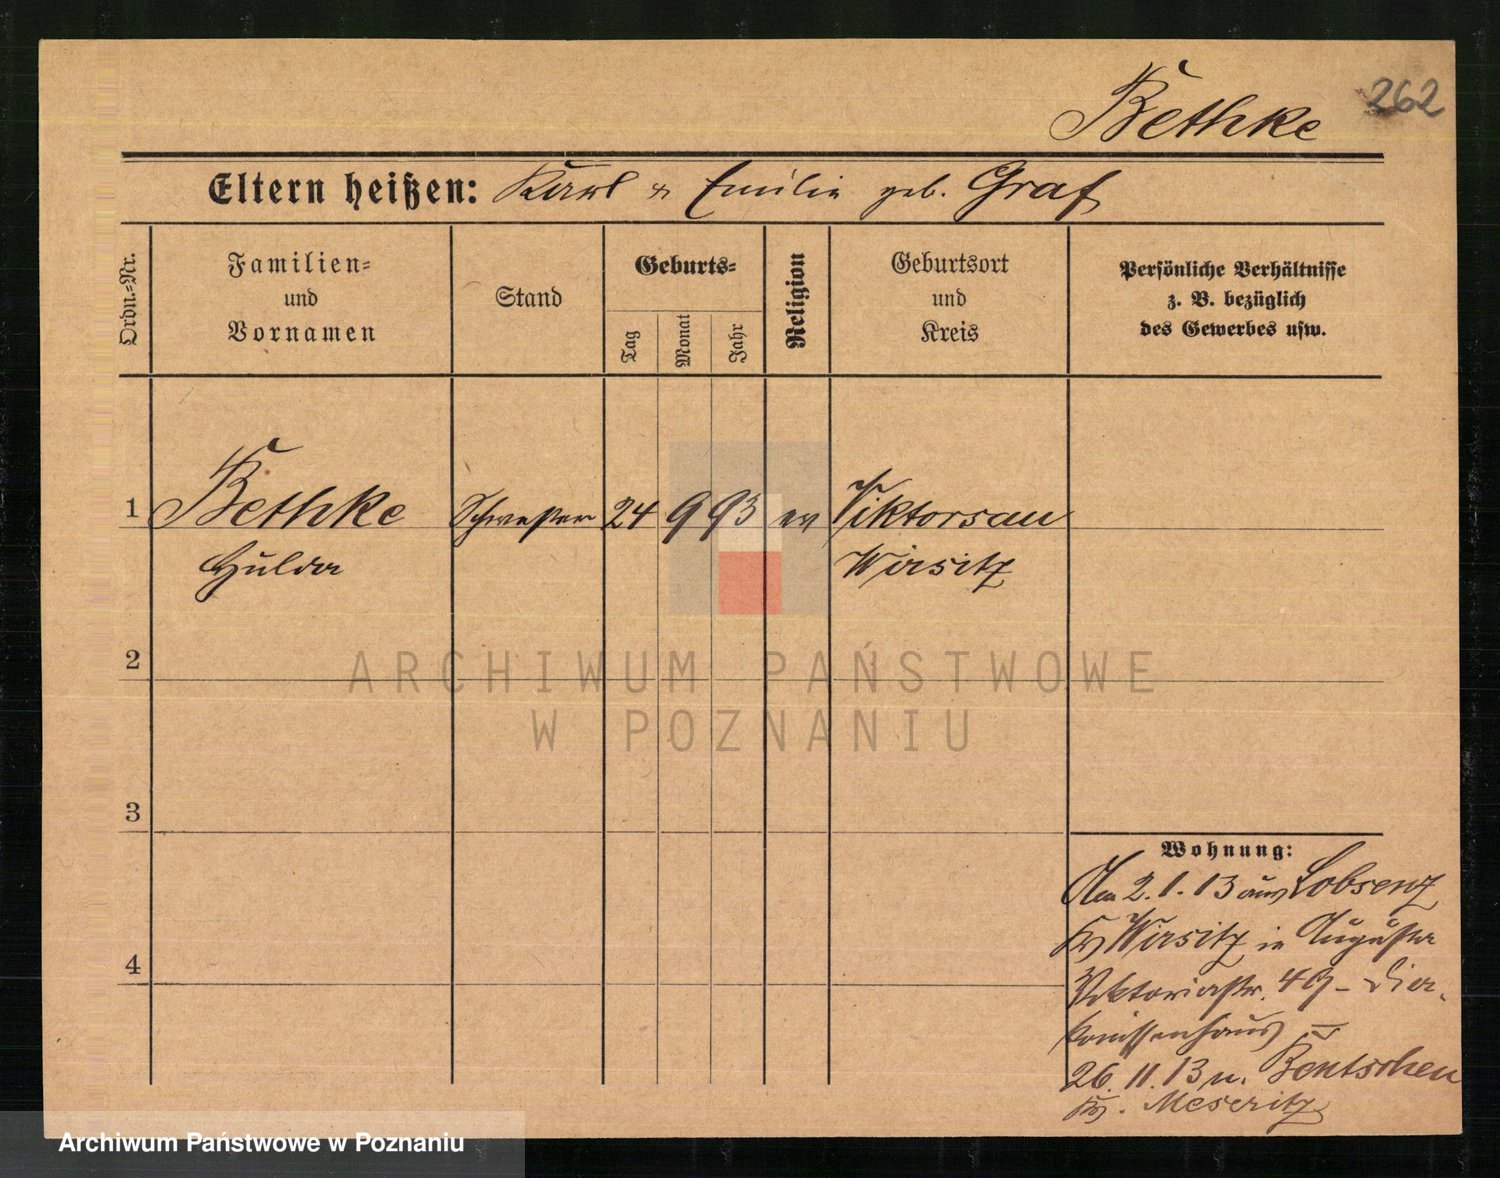 Bethke 262
Eltern heißen: Karl u Emilie geb. Graf
Ordn.=Nr.
Familien=
und
Vornamen
Stand
Geburts=
Tag
Monat
Jahr
Religion
Geburtsort
und
Kreis
Persönliche Verhältnisse
z. B. bezüglich
des Gewerbes usw.
1 Bethke Schwester 24 9 93 ev Viktorsau
Hulda Wirsitz
2
ARCHIWUM PAŃSTWOWE
W POZNANIU
3
4
Wohnung:
Am 2.1.13 aus Lobsenz
Krs Wirsitz in Augusta
Viktoriastr. 49 - Dia-
konissenhaus
26.11.13 n. Bentschen
Krs. Meseritz
Archiwum Państwowe w Poznaniu